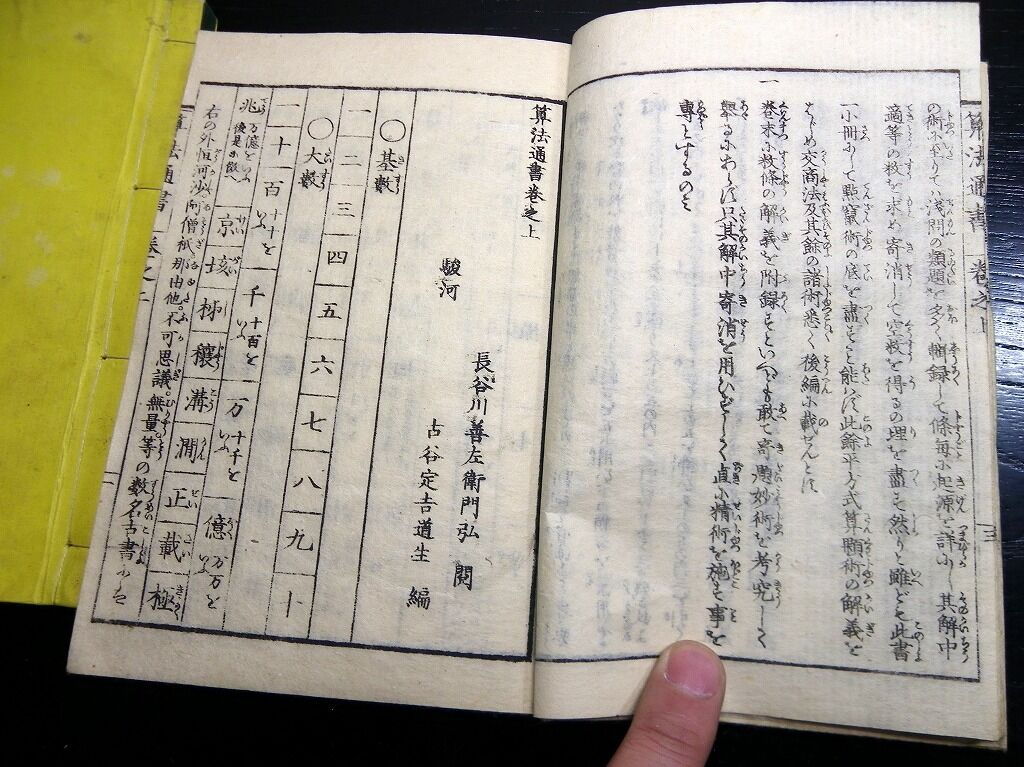 算法通書 巻之上
の術に至りては浅問の類題を多く輯録して條毎に起源を詳にし其解中
適等の数を求め寄消して空数を得るの理を盡す然りと雖ども此書
一小冊にして點竄術の底を盡すこと能はず此餘平方式算顆術の解義を
はじめ交商法及其餘の諸術悉く後編に載せんとす
一
巻末に数條の解義を附録すといへども敢て寄愚妙術を考究しく
舉るにあらず只其解中寄消を用ひずして直に精術を施す事を
專とするのミ
算法通書巻之上
駿河
長谷川善左衛門弘 閲
古谷定吉道生 編
〇基數
一 二 三 四 五 六 七 八 九 十
〇大數
一 十 百 十十を いふ 千 十百を いふ 万 十千を いふ 億 万万を いふ
兆 万億をいふ 後是に倣へ 京 垓 秭 穰 溝 澗 正 載 極
右の外恒河沙阿僧祇那由他不可思議無量等の数名古書に
算法通書 巻之上